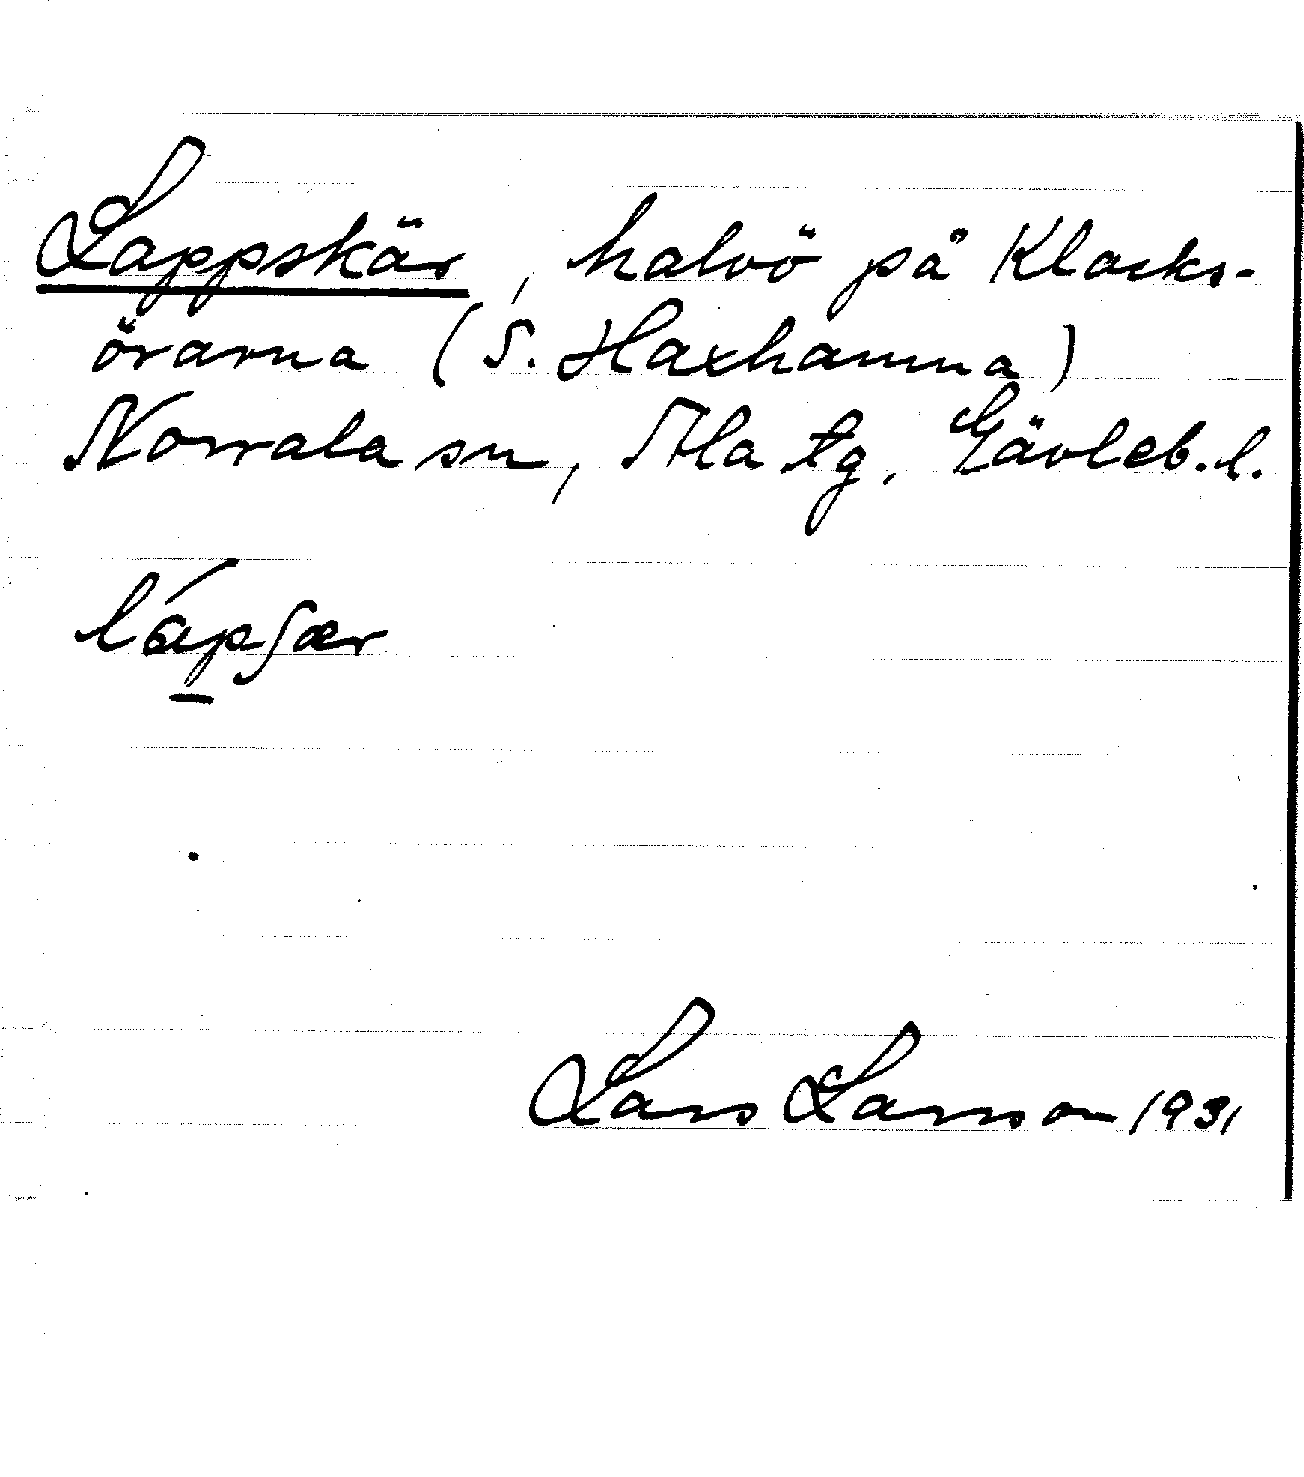 Lappskär, halvö på Klacks-
örarna (S. Haxhamna)
Norrala sn, Ala tg, Gävleb. l.
lápʃær
Lars Larsson 1931